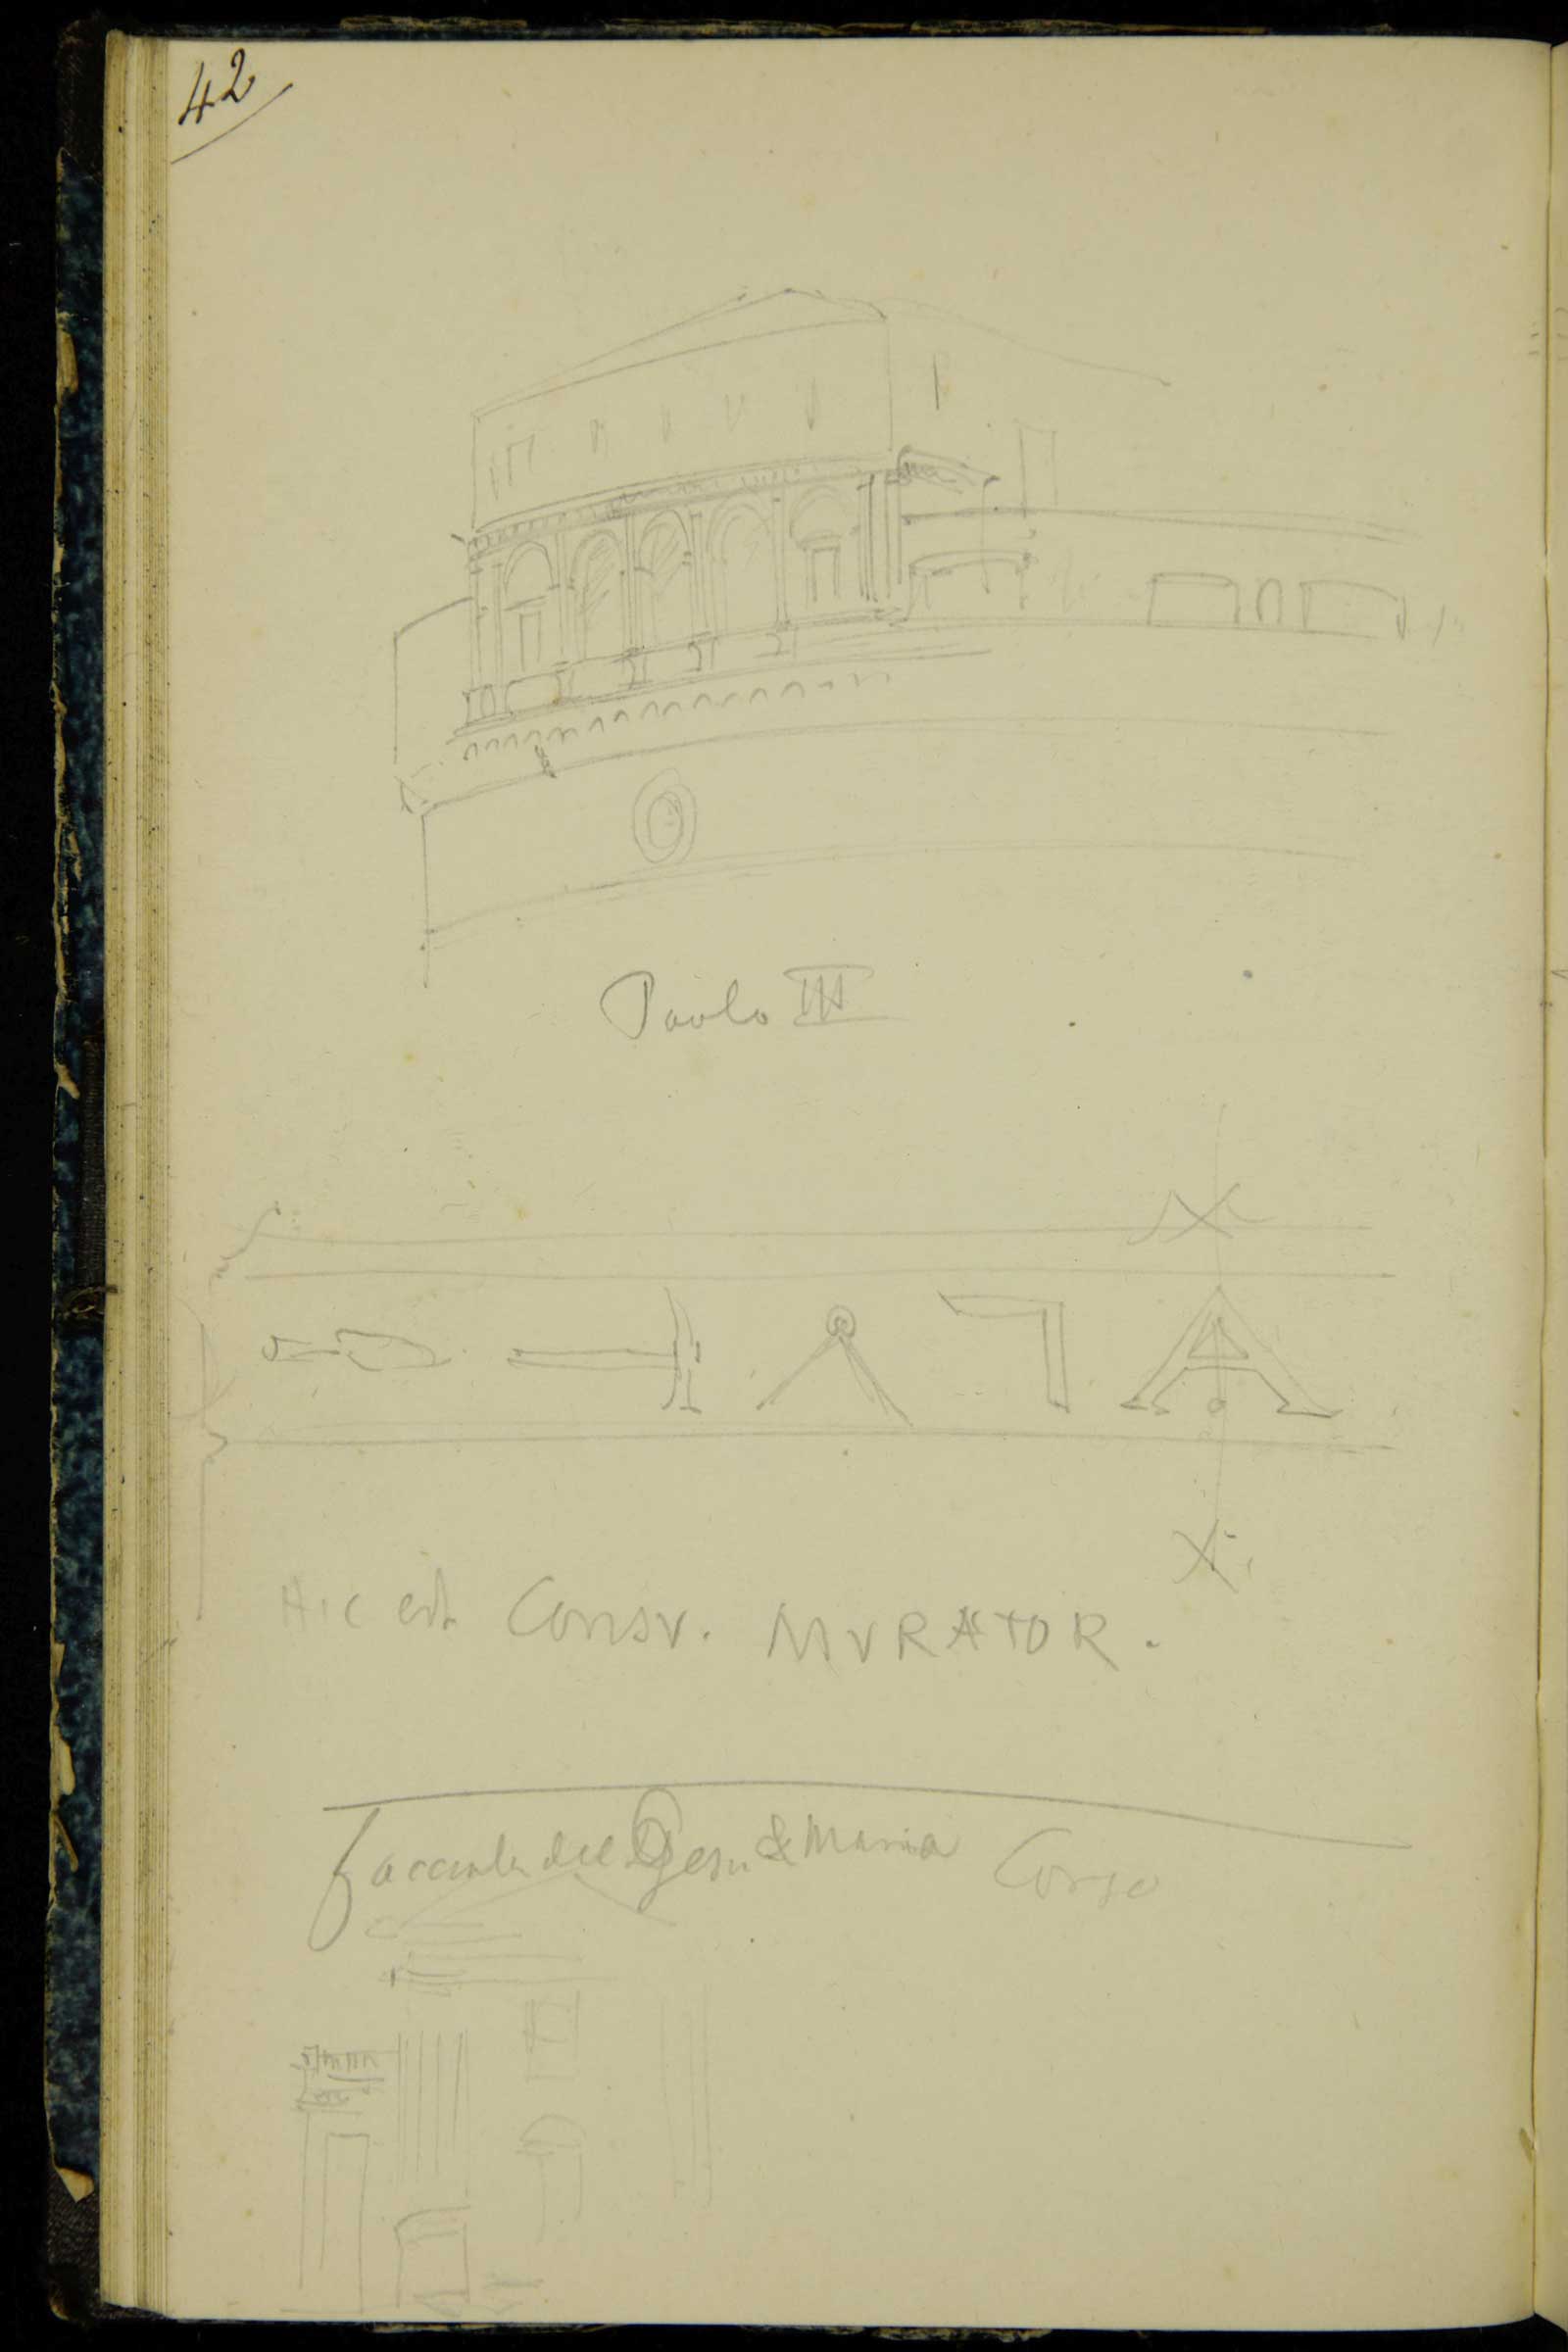 42
Paolo III
HIC est Consv. MVRATOR.
facciata del Gesu & Maria Corso